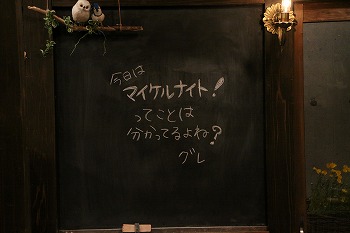 今日は
マイケルナイト!
ってことは
分かってるよね?
グレ